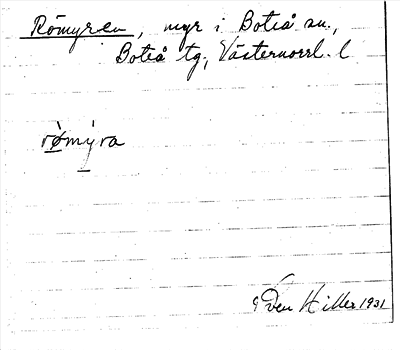 Römyren, myr i Boteå sn.,
Boteå tg., Västernorrl. l
rø̀mýra
Sven Hiller 1931